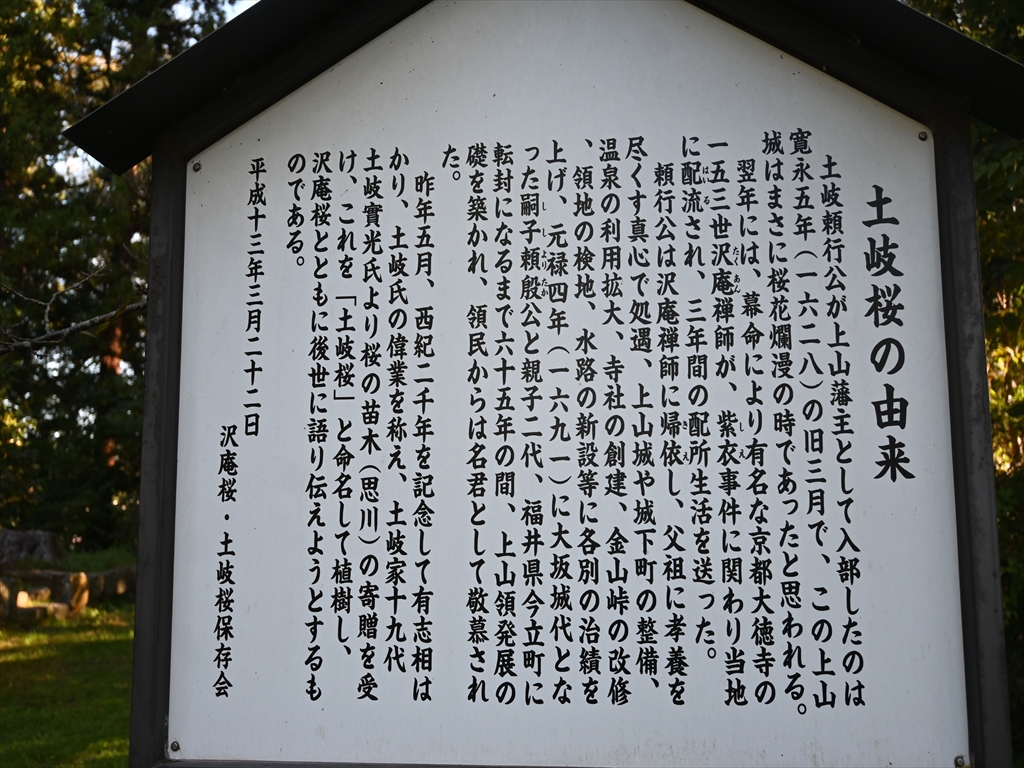 土岐桜の由来
土岐頼行公が上山藩主として入部したのは
寛永五年（一六二八）の旧三月で、この上山
城はまさに桜花爛漫の時であったと思われる。
翌年には、幕命により有名な京都大徳寺の
一五三世沢庵禅師が、紫衣事件に関わり当地
に配流され、三年間の配所生活を送った。
頼行公は沢庵禅師に帰依し、父祖に孝養を
尽くす真心で処遇、上山城や城下町の整備、
温泉の利用拡大、寺社の創建、金山峠の改修
、領地の検地、水路の新設等に各別の治績を
上げ、元禄四年（一六九一）に大坂城代とな
った嗣子頼殷公と親子二代、福井県今立町に
転封になるまで六十五年の間、上山領発展の
礎を築かれ、領民からは名君として敬慕され
た。
昨年五月、西紀二千年を記念して有志相は
かり、土岐氏の偉業を称え、土岐家十九代
土岐實光氏より桜の苗木（思川）の寄贈を受
け、これを「土岐桜」と命名して植樹し、
沢庵桜とともに後世に語り伝えようとするも
のである。
平成十三年三月二十二日
沢庵桜・土岐桜保存会